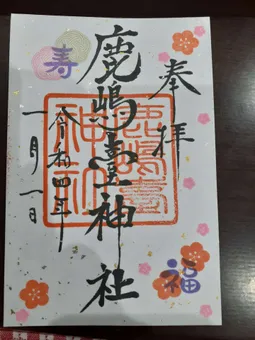 奉拝
鹿嶋臺神社
令和四年
一月一日
寿
福
鹿嶋臺
神社